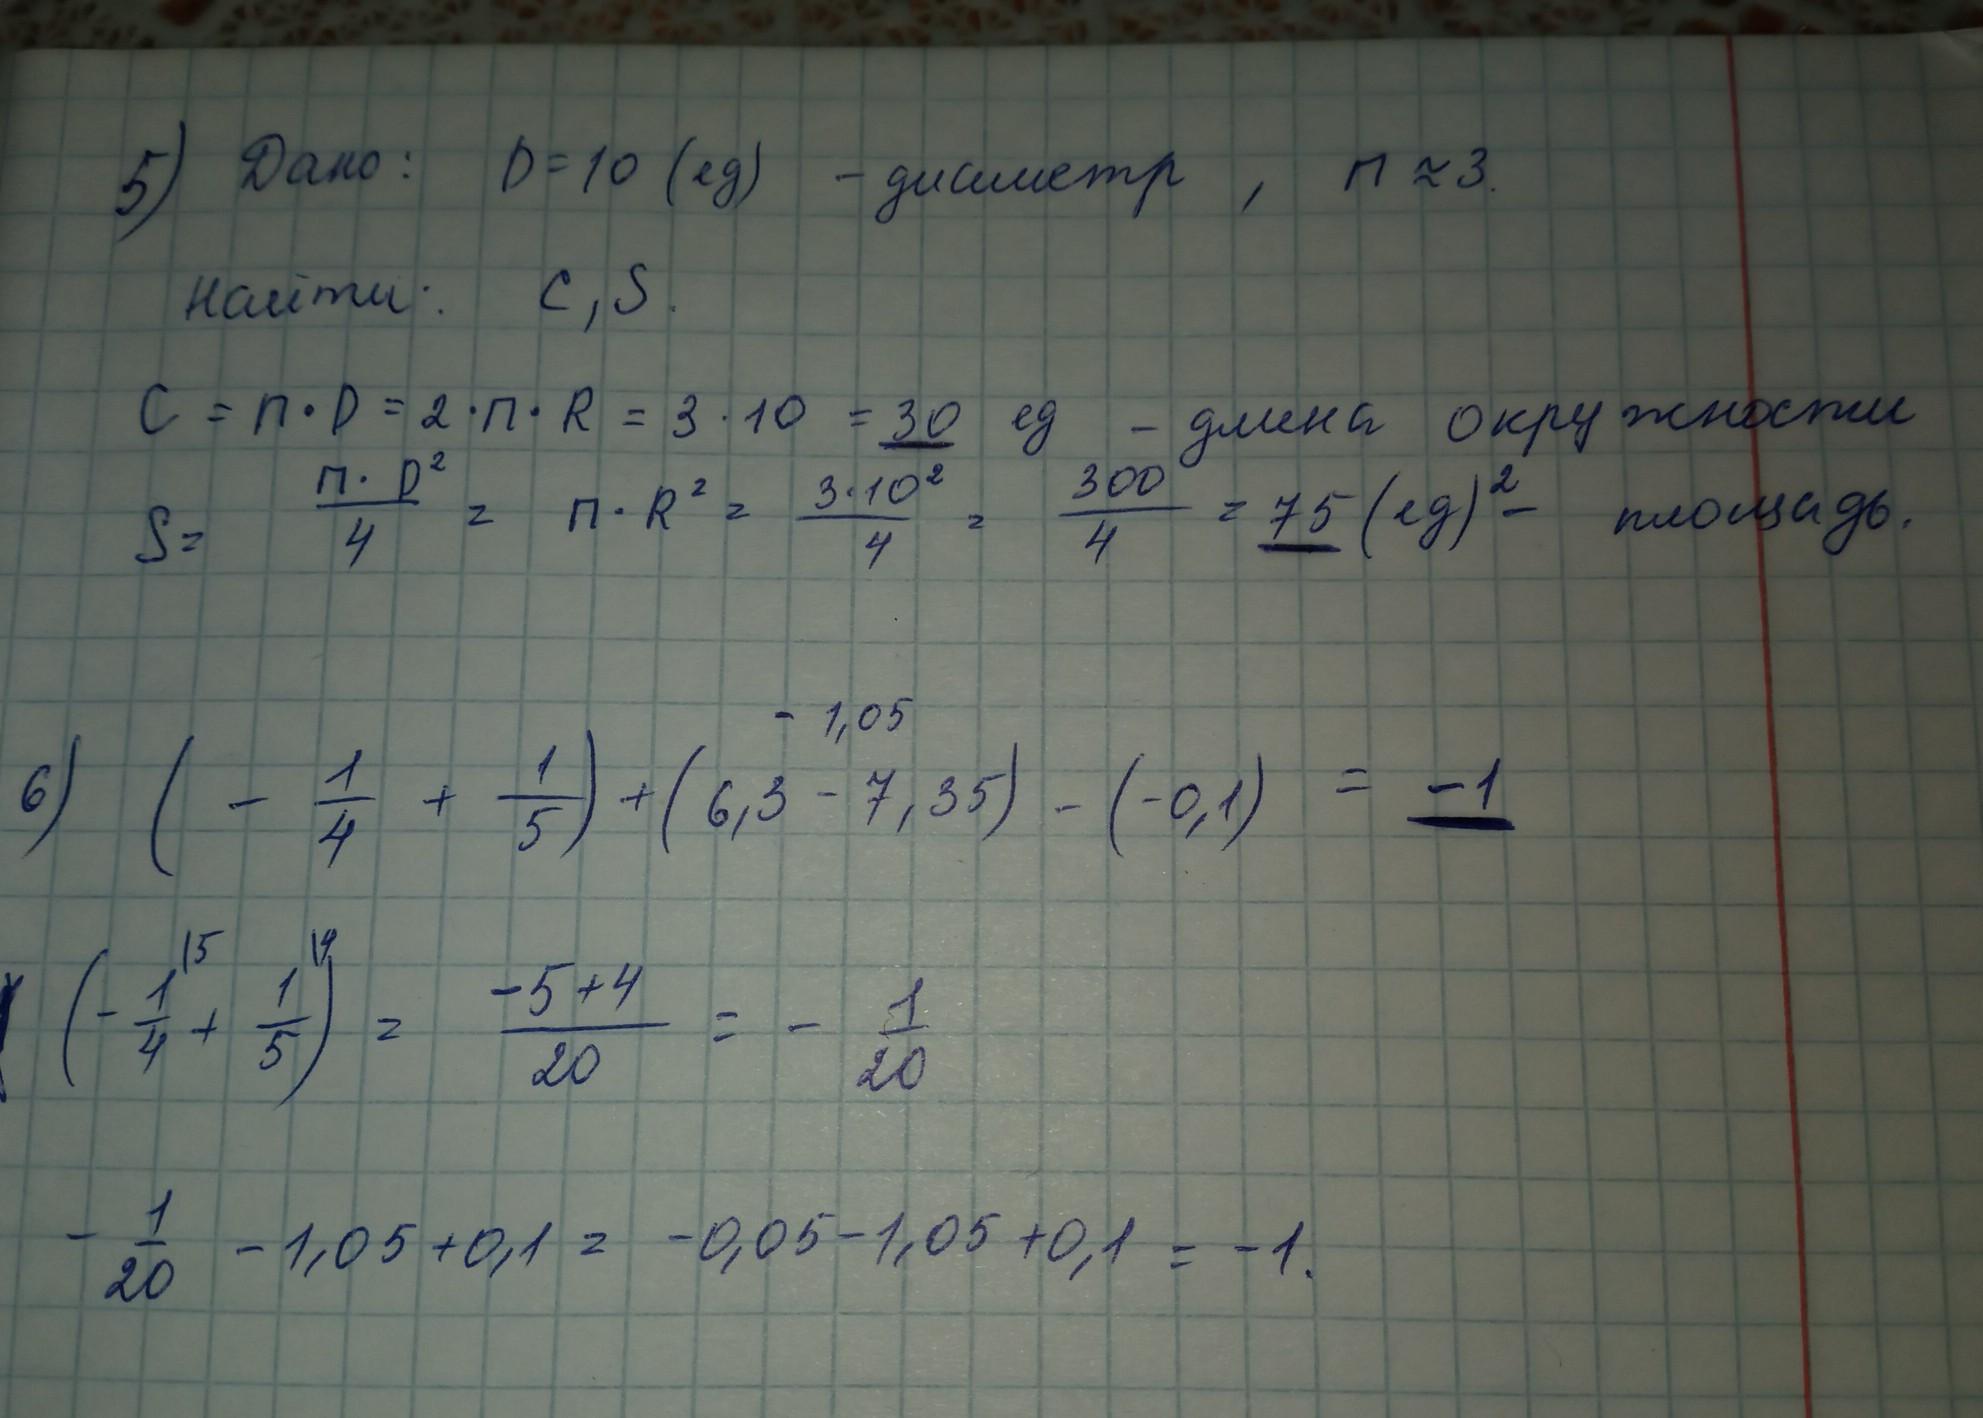 5) Дано: D=10 (ед) - диаметр , п ≈ 3.
Найти: C, S.
C = п·D = 2·п·R = 3·10 = 30 ед - длина окружности
S = п·D²/4 = п·R² = 3·10²/4 = 300/4 = 75 (ед)² - площадь.
- 1,05
6) ( - 1/4 + 1/5 ) + ( 6,3 - 7,35 ) - ( -0,1 ) = -1
( - 1/4 \5 + 1/5 \4 ) = -5+4/20 = - 1/20
- 1/20 - 1,05 + 0,1 = -0,05 - 1,05 + 0,1 = -1.